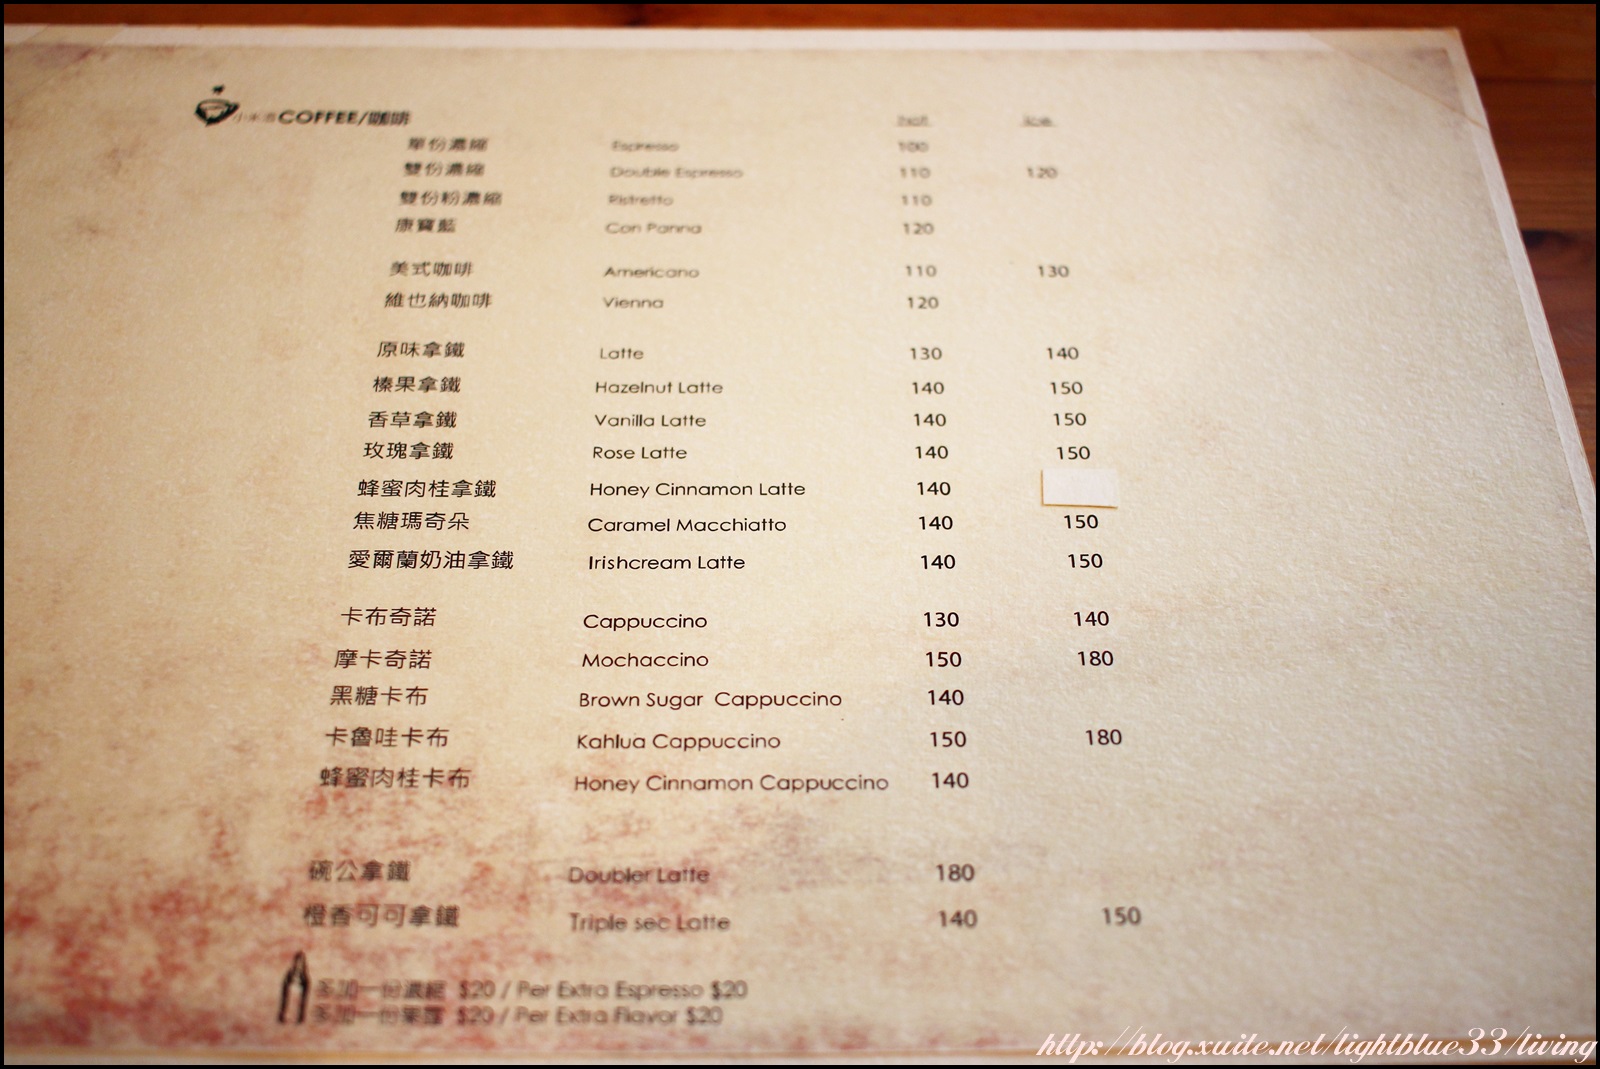 小米酒COFFEE/咖啡 Hot Ice
單份濃縮 Espresso 100
雙份濃縮 Double Espresso 110 120
雙份粉濃縮 Ristretto 110
康寶藍 Con Panna 120
美式咖啡 Americano 110 130
維也納咖啡 Vienna 120
原味拿鐵 Latte 130 140
榛果拿鐵 Hazelnut Latte 140 150
香草拿鐵 Vanilla Latte 140 150
玫瑰拿鐵 Rose Latte 140 150
蜂蜜肉桂拿鐵 Honey Cinnamon Latte 140
焦糖瑪奇朵 Caramel Macchiatto 140 150
愛爾蘭奶油拿鐵 Irishcream Latte 140 150
卡布奇諾 Cappuccino 130 140
摩卡奇諾 Mochaccino 150 180
黑糖卡布 Brown Sugar Cappuccino 140
卡魯哇卡布 Kahlua Cappuccino 150 180
蜂蜜肉桂卡布 Honey Cinnamon Cappuccino 140
碗公拿鐵 Doubler Latte 180
橙香可可拿鐵 Triple sec Latte 140 150
多加一份濃縮 $20 / Per Extra Espresso $20
多加一份果露 $20 / Per Extra Flavor $20
http://blog.xuite.net/lightblue33/living